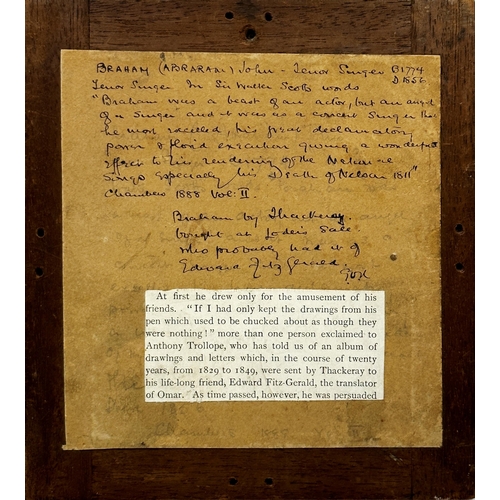 BRAHAM (ABRARAM) John - Tenor Singer B 1774
D. 1856
Tenor Singer. In Sir Walter Scott's words
"Braham was a beast of an actor, but an angel
of a singer and it was as a concert singer that
he most excelled, his great declamatory
power & florid execution giving a wonderful
effect to his rendering of the National
Songs especially his Death of Nelson 1811"
Chambers 1888 Vol: II.
Braham by Thackeray.
bought at Loder's Sale
who probably had it of
Edward FitzGerald.
At first he drew only for the amusement of his
friends. "If I had only kept the drawings from his
pen which used to be chucked about as though they
were nothing!" more than one person exclaimed to
Anthony Trollope, who has told us of an album of
drawings and letters which, in the course of twenty
years, from 1829 to 1849, were sent by Thackeray to
his life-long friend, Edward Fitz-Gerald, the translator
of Omar. As time passed, however, he was persuaded